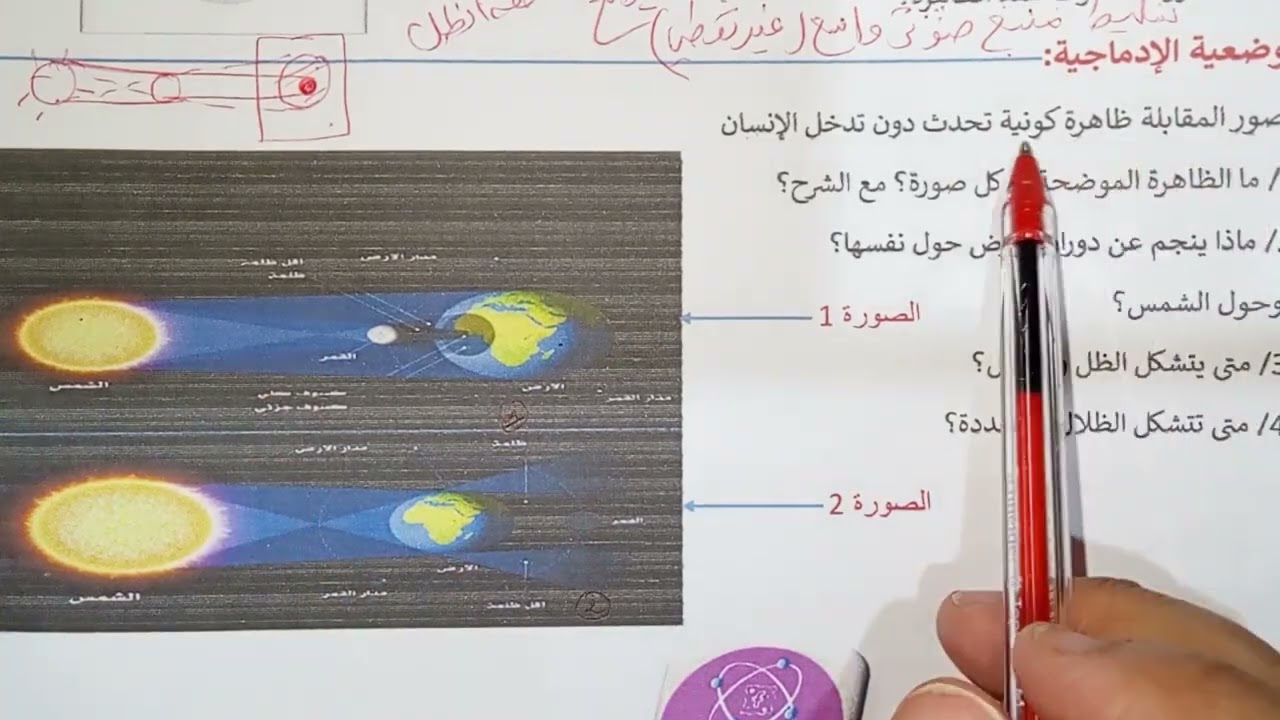 تسليط منبع ضوئي واسع (غير نقطي)
وضعية الإدماجية:
صور المقابلة ظاهرة كونية تحدث دون تدخل الإنسان
/ ما الظاهرة الموضحة كل صورة؟ مع الشرح؟
/ ماذا ينجم عن دورا ض حول نفسها؟
وحول الشمس؟
3/ متى يتشكل الظل ل؟
4/ متى تتشكل الظلال ددة؟
مدار الارض
اقل ظلمة
ظلمة
القمر
الشمس
الارض
مدار القمر
كسوف كلي
كسوف جزئي
1
الصورة 1
مدار الارض
ظلمة
القمر
الارض
الشمس
مدار القمر
اقل ظلمة
2
الصورة 2